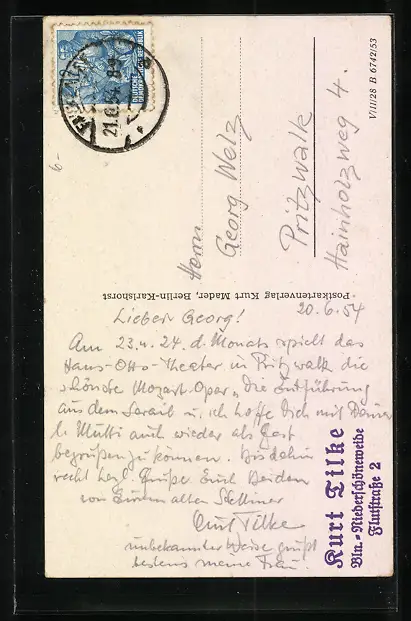 DEUTSCHE DEMOKRATISCHE REPUBLIK
21.6.54
6-
V/11/28 B 6742/53
Herrn
Georg Welz
Pritzwalk
Hainholzweg 4.
Postkartenverlag Kurt Mader, Berlin-Karlshorst
20.6.54
Lieber Georg!
Am 23. u. 24. d. Monats spielt das
Hans-Otto-Theater in Pritzwalk die
schönste Mozart-Oper „Die Entführung
aus dem Serail u. ich hoffe Dich mit Deiner
lb. Mutti auch wieder als Gast
begrüßen zu können. Bis dahin
recht herzl. Grüße Euch Beiden
von Eurem alten Stettiner
Curt Tilke
unbekannter Weise grüßt
bestens meine Frau.
Kurt Tilke
Bln.-Niederschöneweide
Flutstraße 2